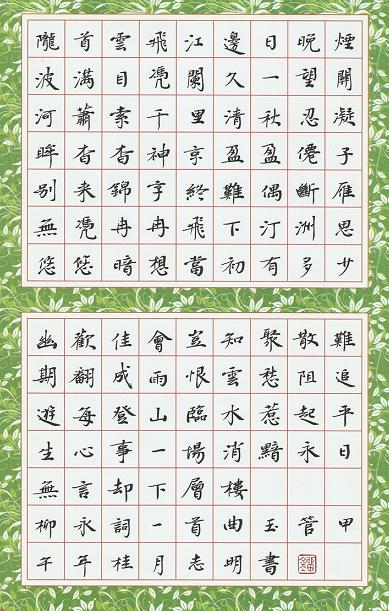 隴首雲飛江邊日晚煙
波滿目凴闌久一望關
河蕭索千里清秋忍凝
眸杳杳神京盈盈僊子
別來錦字終難偶斷雁
無凴冉冉飛下汀洲思
悠悠暗想當初有多少
幽歡佳會豈知聚散難
期翻成雨恨雲愁阻追
遊每登山臨水惹起平
生心事一場消黯永日
無言却下層樓
柳永詞一首曲玉管甲
午年桂月志明書